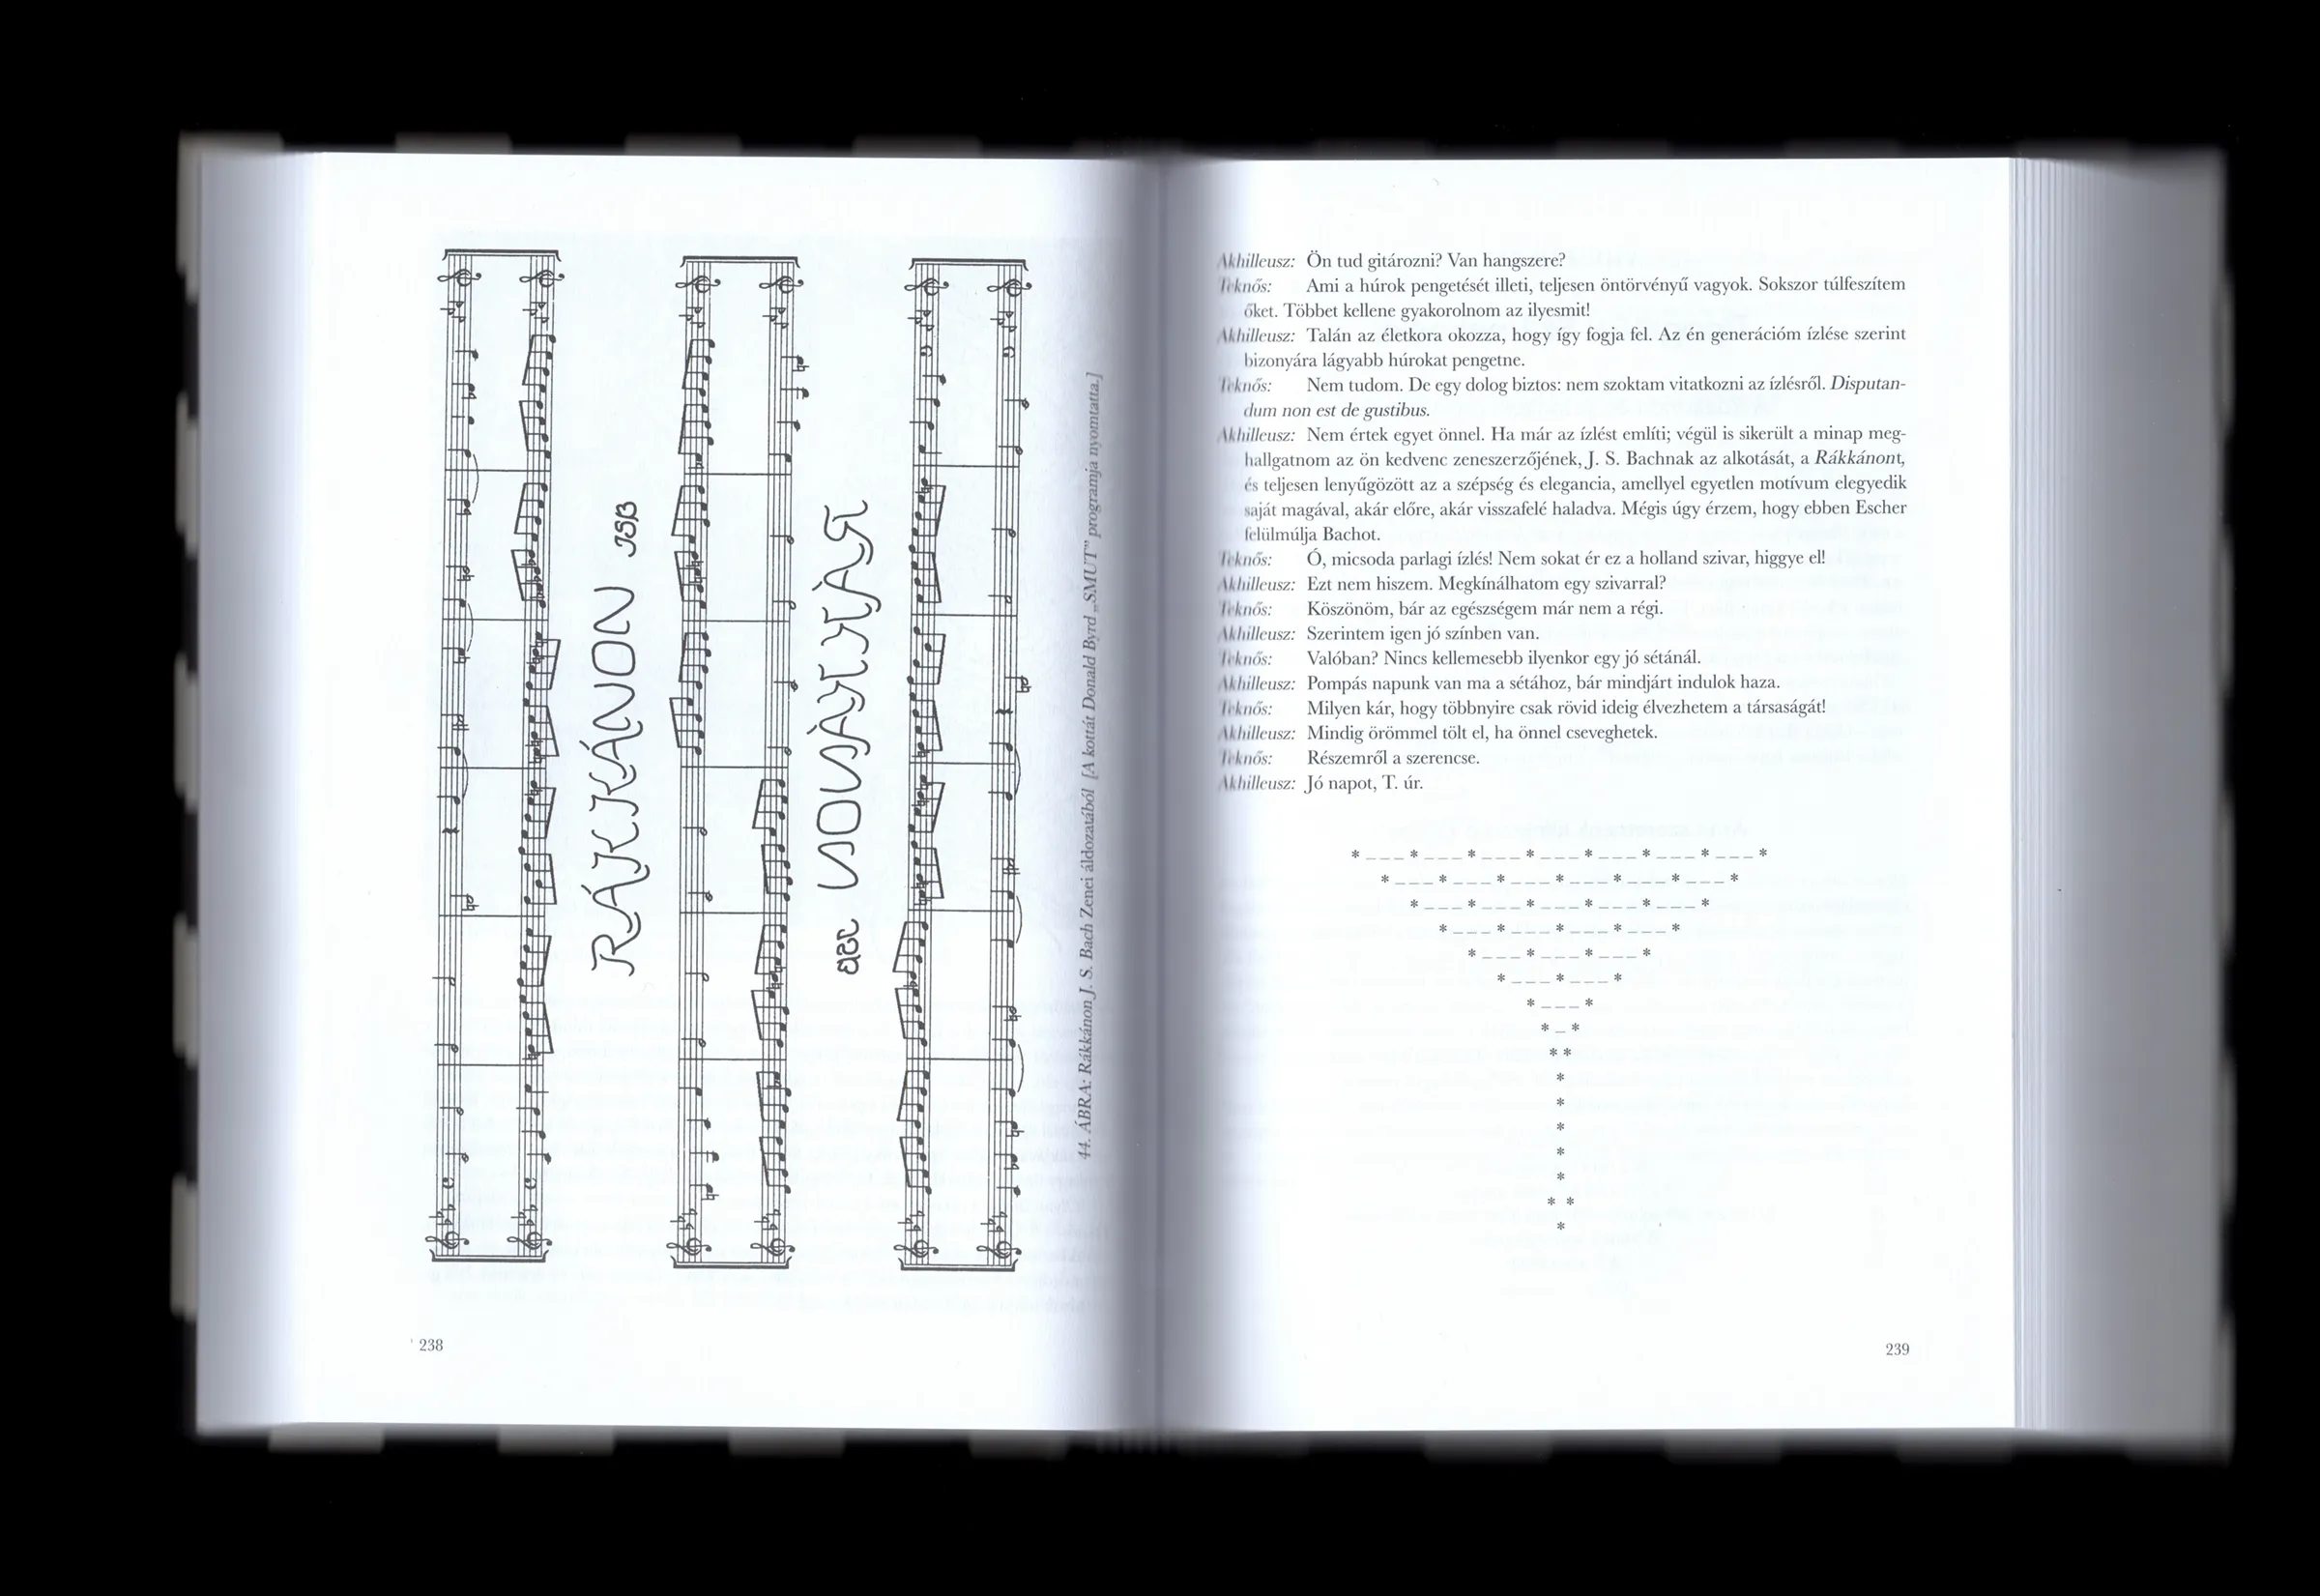 RÁKKÁNON JSB
RÁKKÁNON JSB
44. ÁBRA: Rákkánon J. S. Bach Zenei áldozatából [A kottát Donald Byrd „SMUT” programja nyomtatta.]
238
Akhilleusz: Ön tud gitározni? Van hangszere?
Teknős: Ami a húrok pengetését illeti, teljesen öntörvényű vagyok. Sokszor túlfeszítem
őket. Többet kellene gyakorolnom az ilyesmit!
Akhilleusz: Talán az életkora okozza, hogy így fogja fel. Az én generációm ízlése szerint
bizonyára lágyabb húrokat pengetne.
Teknős: Nem tudom. De egy dolog biztos: nem szoktam vitatkozni az ízlésről. Disputan-
dum non est de gustibus.
Akhilleusz: Nem értek egyet önnel. Ha már az ízlést említi; végül is sikerült a minap meg-
hallgatnom az ön kedvenc zeneszerzőjének, J. S. Bachnak az alkotását, a Rákkánont,
és teljesen lenyűgözött az a szépség és elegancia, amellyel egyetlen motívum elegyedik
saját magával, akár előre, akár visszafelé haladva. Mégis úgy érzem, hogy ebben Escher
felülmúlja Bachot.
Teknős: Ó, micsoda parlagi ízlés! Nem sokat ér ez a holland szivar, higgye el!
Akhilleusz: Ezt nem hiszem. Megkínálhatom egy szivarral?
Teknős: Köszönöm, bár az egészségem már nem a régi.
Akhilleusz: Szerintem igen jó színben van.
Teknős: Valóban? Nincs kellemesebb ilyenkor egy jó sétánál.
Akhilleusz: Pompás napunk van ma a sétához, bár mindjárt indulok haza.
Teknős: Milyen kár, hogy többnyire csak rövid ideig élvezhetem a társaságát!
Akhilleusz: Mindig örömmel tölt el, ha önnel cseveghetek.
Teknős: Részemről a szerencse.
Akhilleusz: Jó napot, T. úr.
*___*___*___*___*___*___*___*
*___*___*___*___*___*___*
*___*___*___*___*___*
*___*___*___*___*
*___*___*___*
*___*___*
*___*
*_*
**
*
*
*
*
*
* *
*
239